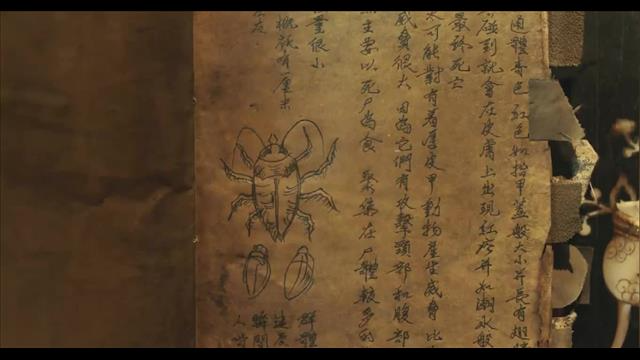 通體青色 紅色如指甲蓋般大小并長有翅
碰到就會在皮膚上出現紅疹并如潮水般
最終死亡
可能對有着厚皮甲動物產生威脅 比
威脅很大 因為它們有攻擊頸部和腹部
主要以死尸為食 聚集在尸體較多的
量很小
概就有一厘米
群體
速
瞬間
人